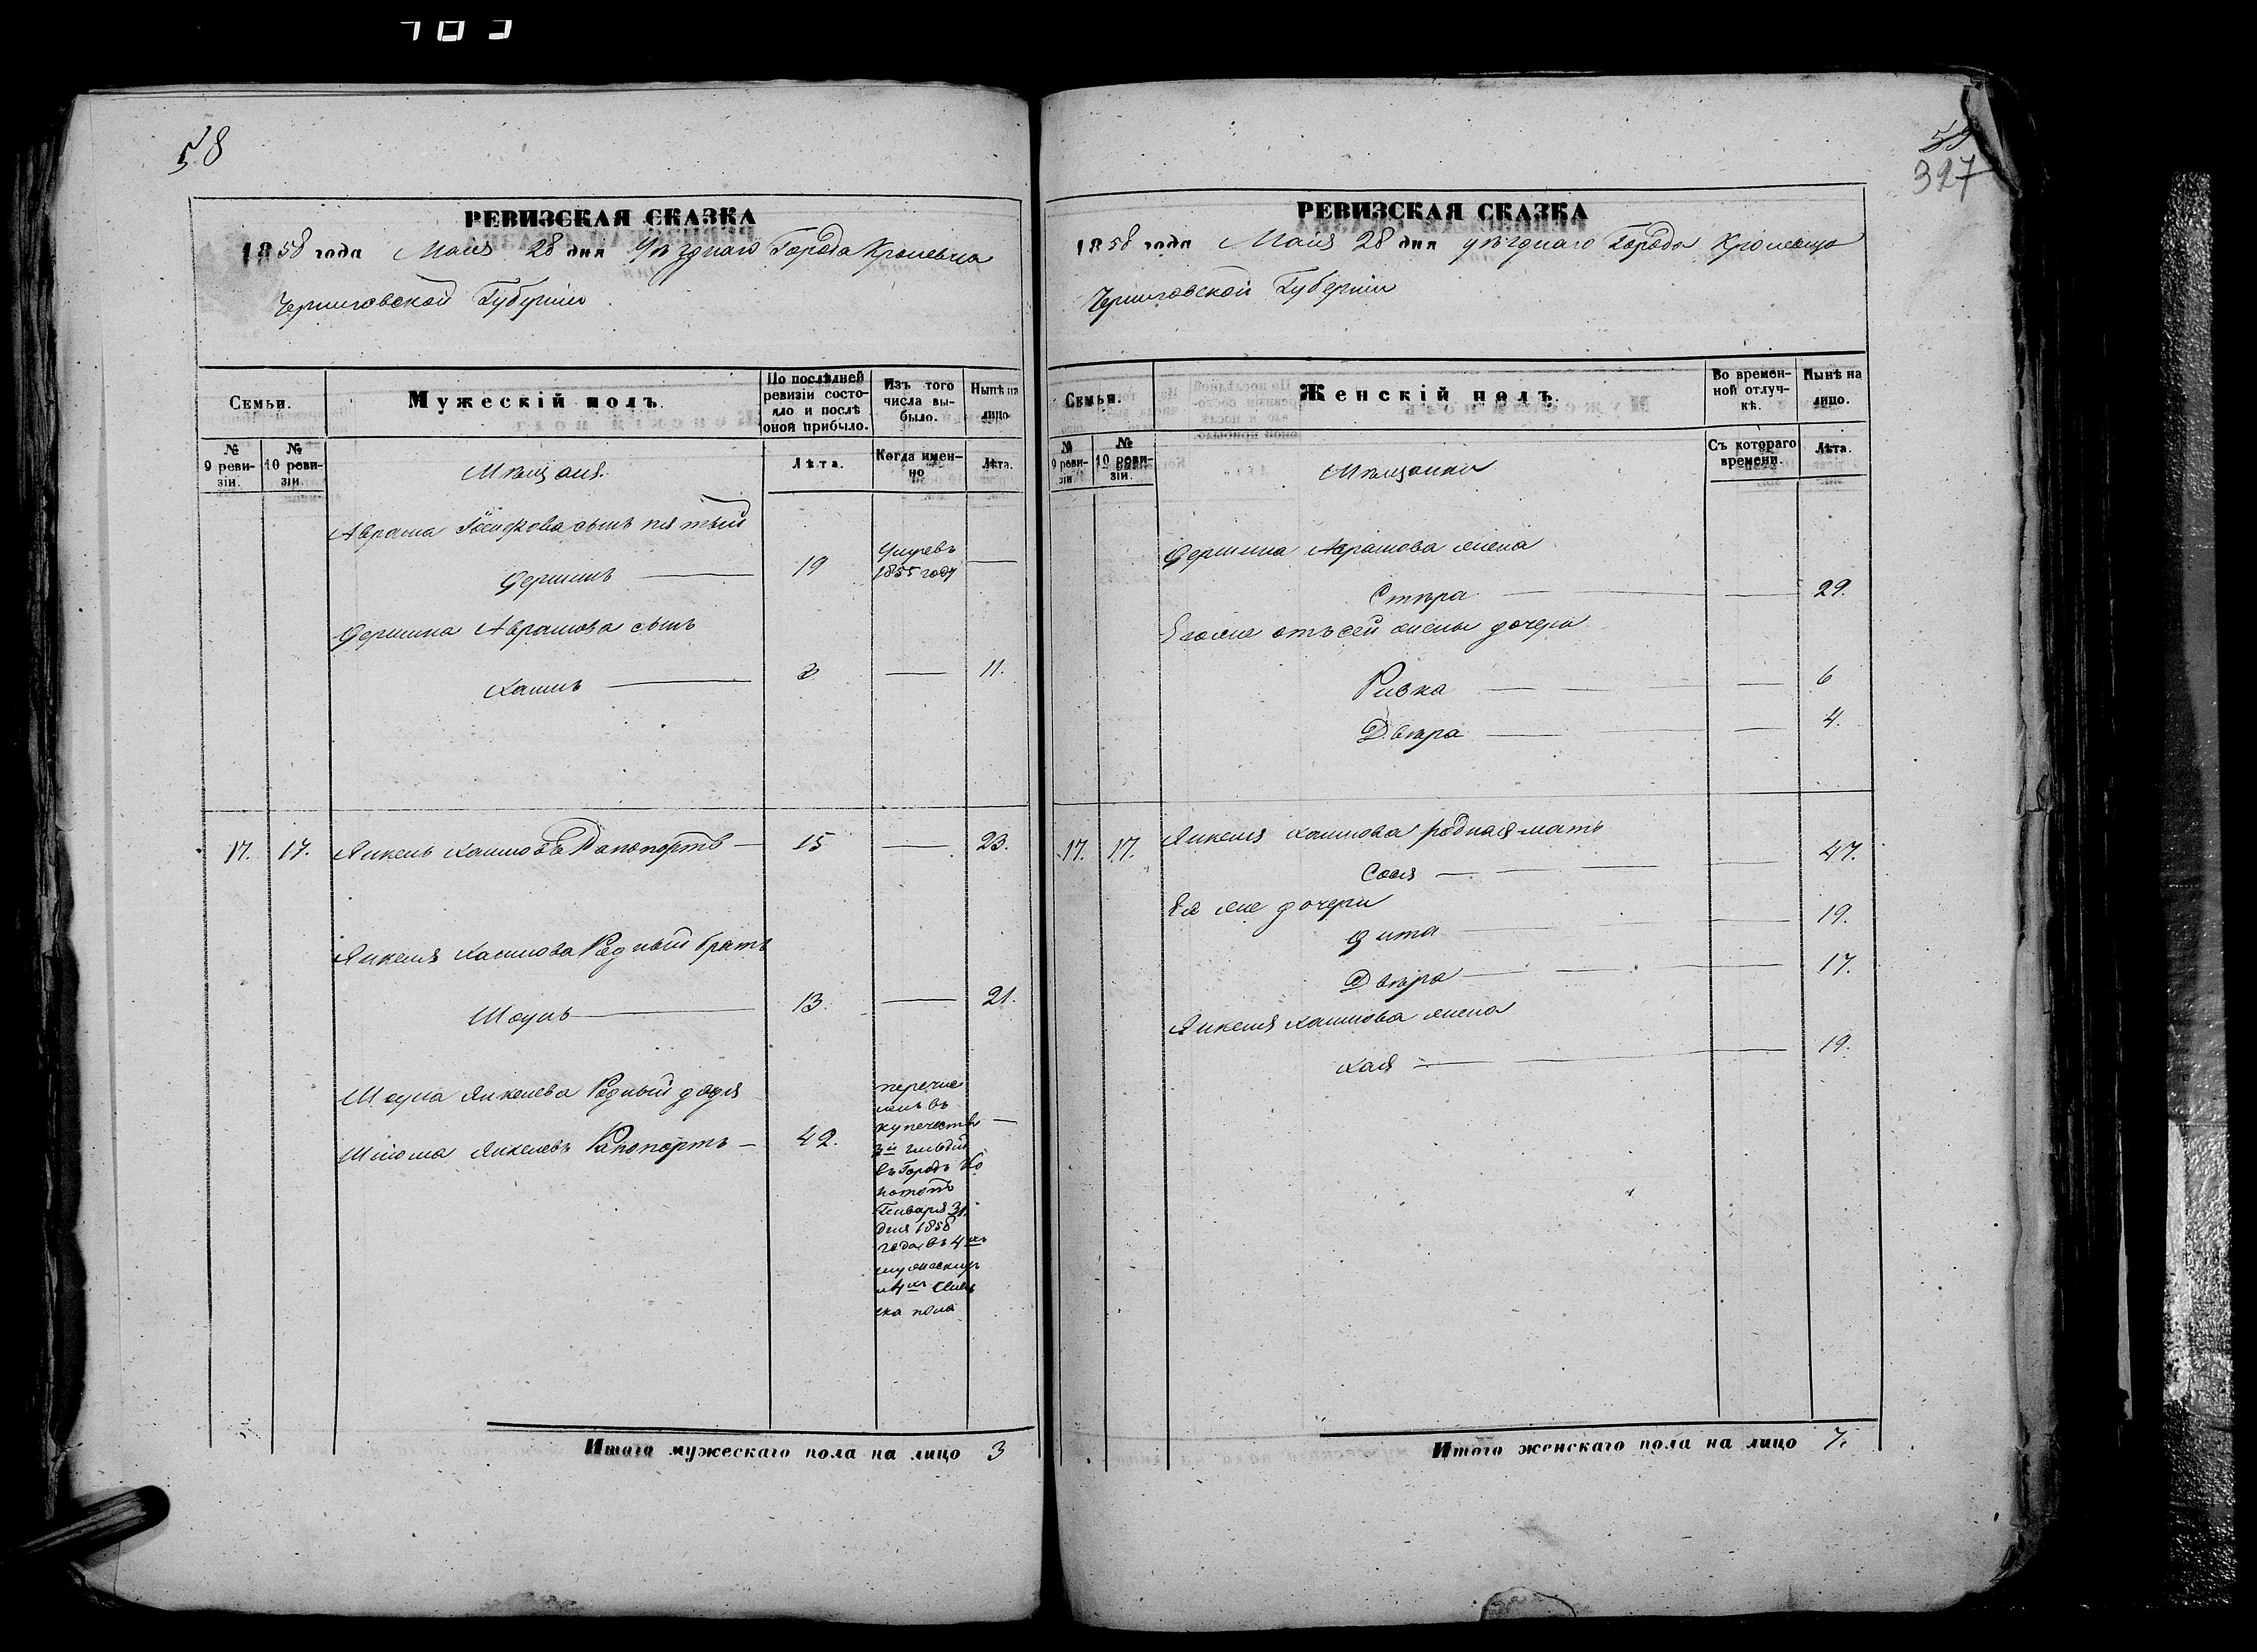 58
РЕВИЗСКАЯ СКАЗКА
1858 года Маія 28 дня Уѣзднаго Города Кролевца
Черниговской Губерніи
Семьи.
Мужескій полъ.
По послѣдней ревизіи состояло и послѣ оной прибыло.
Изъ того числа выбыло.
Нынѣ на лицо
№ 9 ревизіи.
№ 10 ревизіи.
Мѣщане.
Лѣта.
Когда именно
Лѣта.
Аврама сынъ пятый
19
Умеръ
1855 году
—
Аврамова сынъ
Хаимъ — 3 — 11.
17. 17. Янкель Хаимовъ Рапопортъ — 15 — 23.
Янкеля Хаимова Родный братъ
Шоулъ — 13. — 21.
Шоула Янкелева Родный дядя
Шлома Янкелевъ Рапопортъ — 42. —
перечис
ленъ въ
купечество
3й гильдіи
въ Городъ Ко
нотопъ
Генваря 31.
дня 1858
года въ 4хъ
мужеских
и 4хъ женс
ка пола
Итого мужескаго пола на лицо 3
59
327
РЕВИЗСКАЯ СКАЗКА
1858 года Маія 28 дня уѣзднаго Города Кролевца
Черниговской Губерніи
Семьи.
Женскій полъ.
Во временной отлучкѣ.
Нынѣ на лицо.
№ 9 ревизіи.
№ 10 ревизіи.
Мѣщанки
Съ котораго времени.
Лѣта.
Аврамова жена
— — 29.
Его же отъ сей жены дочери
Ривка — — 6
Двѣра — — 4.
17. 17. Янкеля Хаимова родная мать
Сося — — 47.
Ея же дочери
— — 19.
Двѣра — — 17.
Янкеля Хаимова жена
Хая — — 19.
Итого женскаго пола на лицо 7.